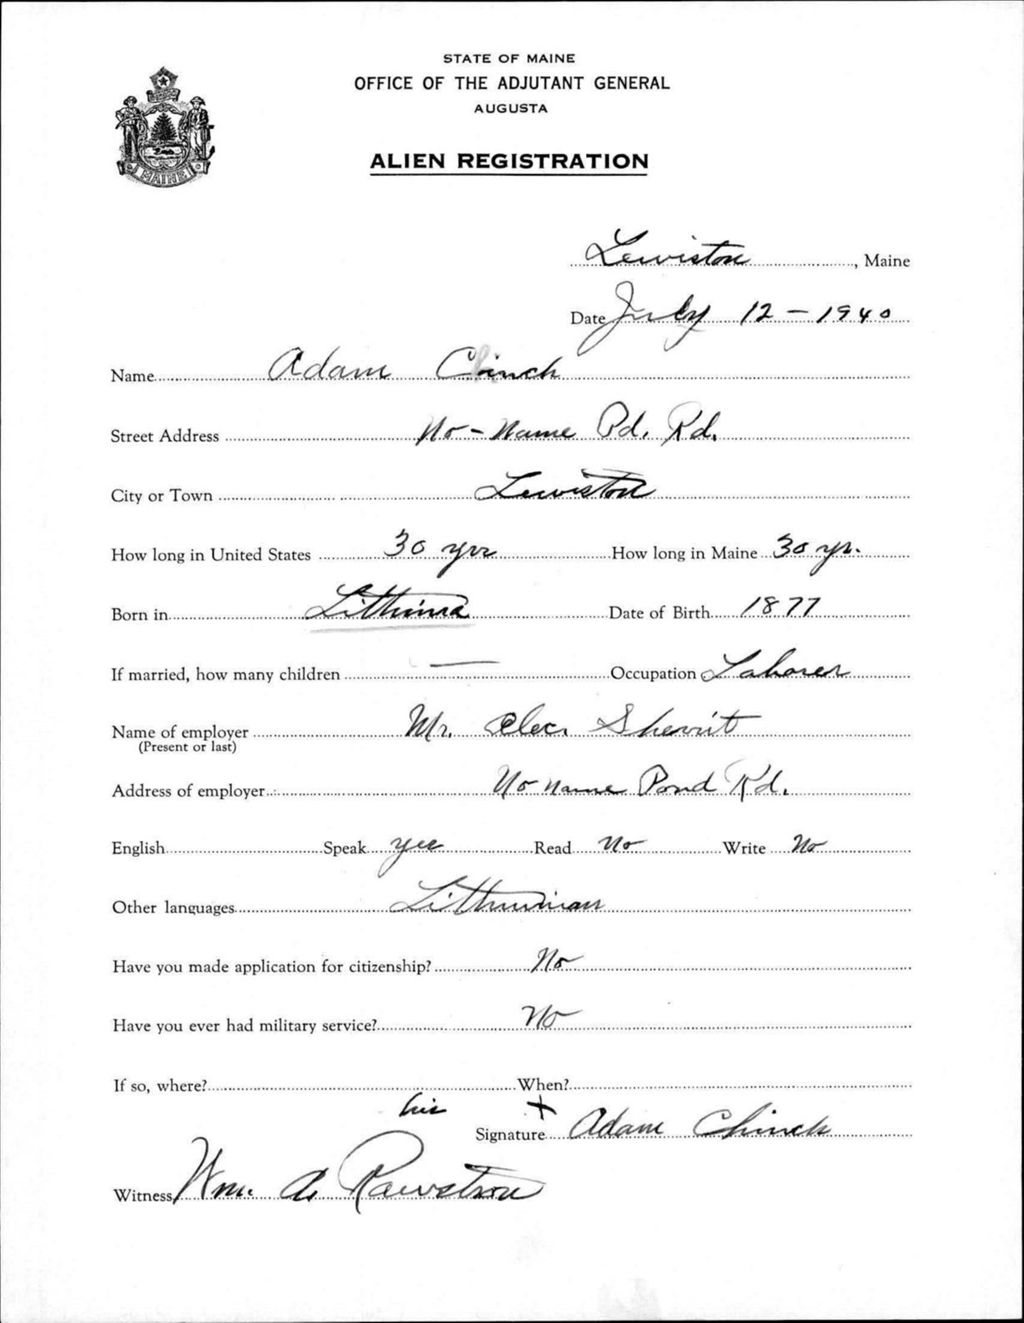 STATE OF MAINE
OFFICE OF THE ADJUTANT GENERAL
AUGUSTA
ALIEN REGISTRATION
MAINE
Lewiston, Maine
Date July 12 - 1940
Name Adam Chinch
Street Address No-Name Pd. Rd.
City or Town Lewiston
How long in United States 30 yrs How long in Maine 30 yr.
Born in Date of Birth 1877
If married, how many children — Occupation Laborer
Name of employer Mr. Alec.
(Present or last)
Address of employer No name Pond Rd.
English Speak yes Read No Write No
Other languages Lithuanian
Have you made application for citizenship? No
Have you ever had military service? No
If so, where? When?
his +
Signature Adam Chinch
Witness Wm. A. Rawstron